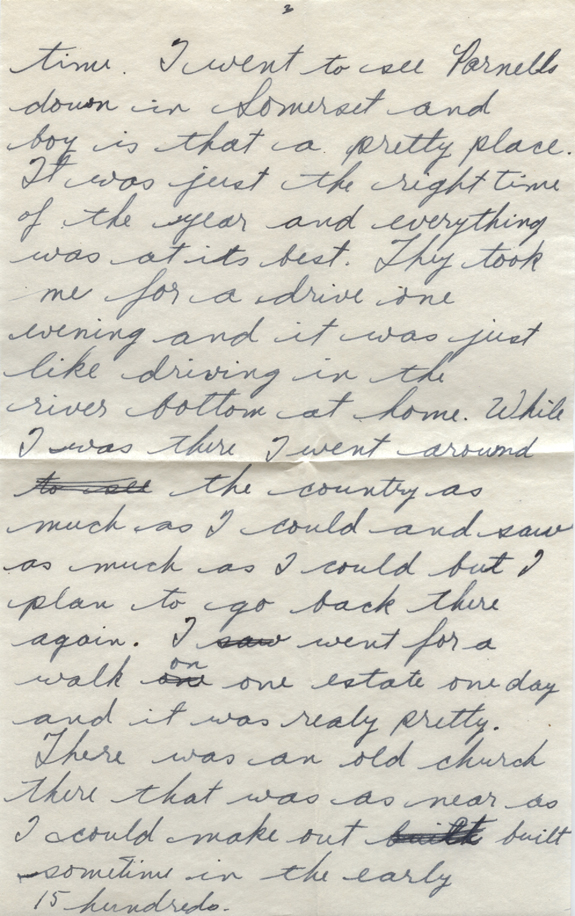 2
time. I went to see Parnells
down in Somerset and
boy is that a pretty place.
It was just the right time
of the year and everything
was at its best. Thy took
me for a drive one
evening and it was just
like driving in the
river bottom at home. While
I was there I went around
to see the country as
much as I could and saw
as much as I could but I
plan to go back there
again. I saw went for a
on
walk one one estate one day
and it was realy pretty.
There was an old church
there that was as near as
I could make out built built
sometime in the early
15 hundreds.